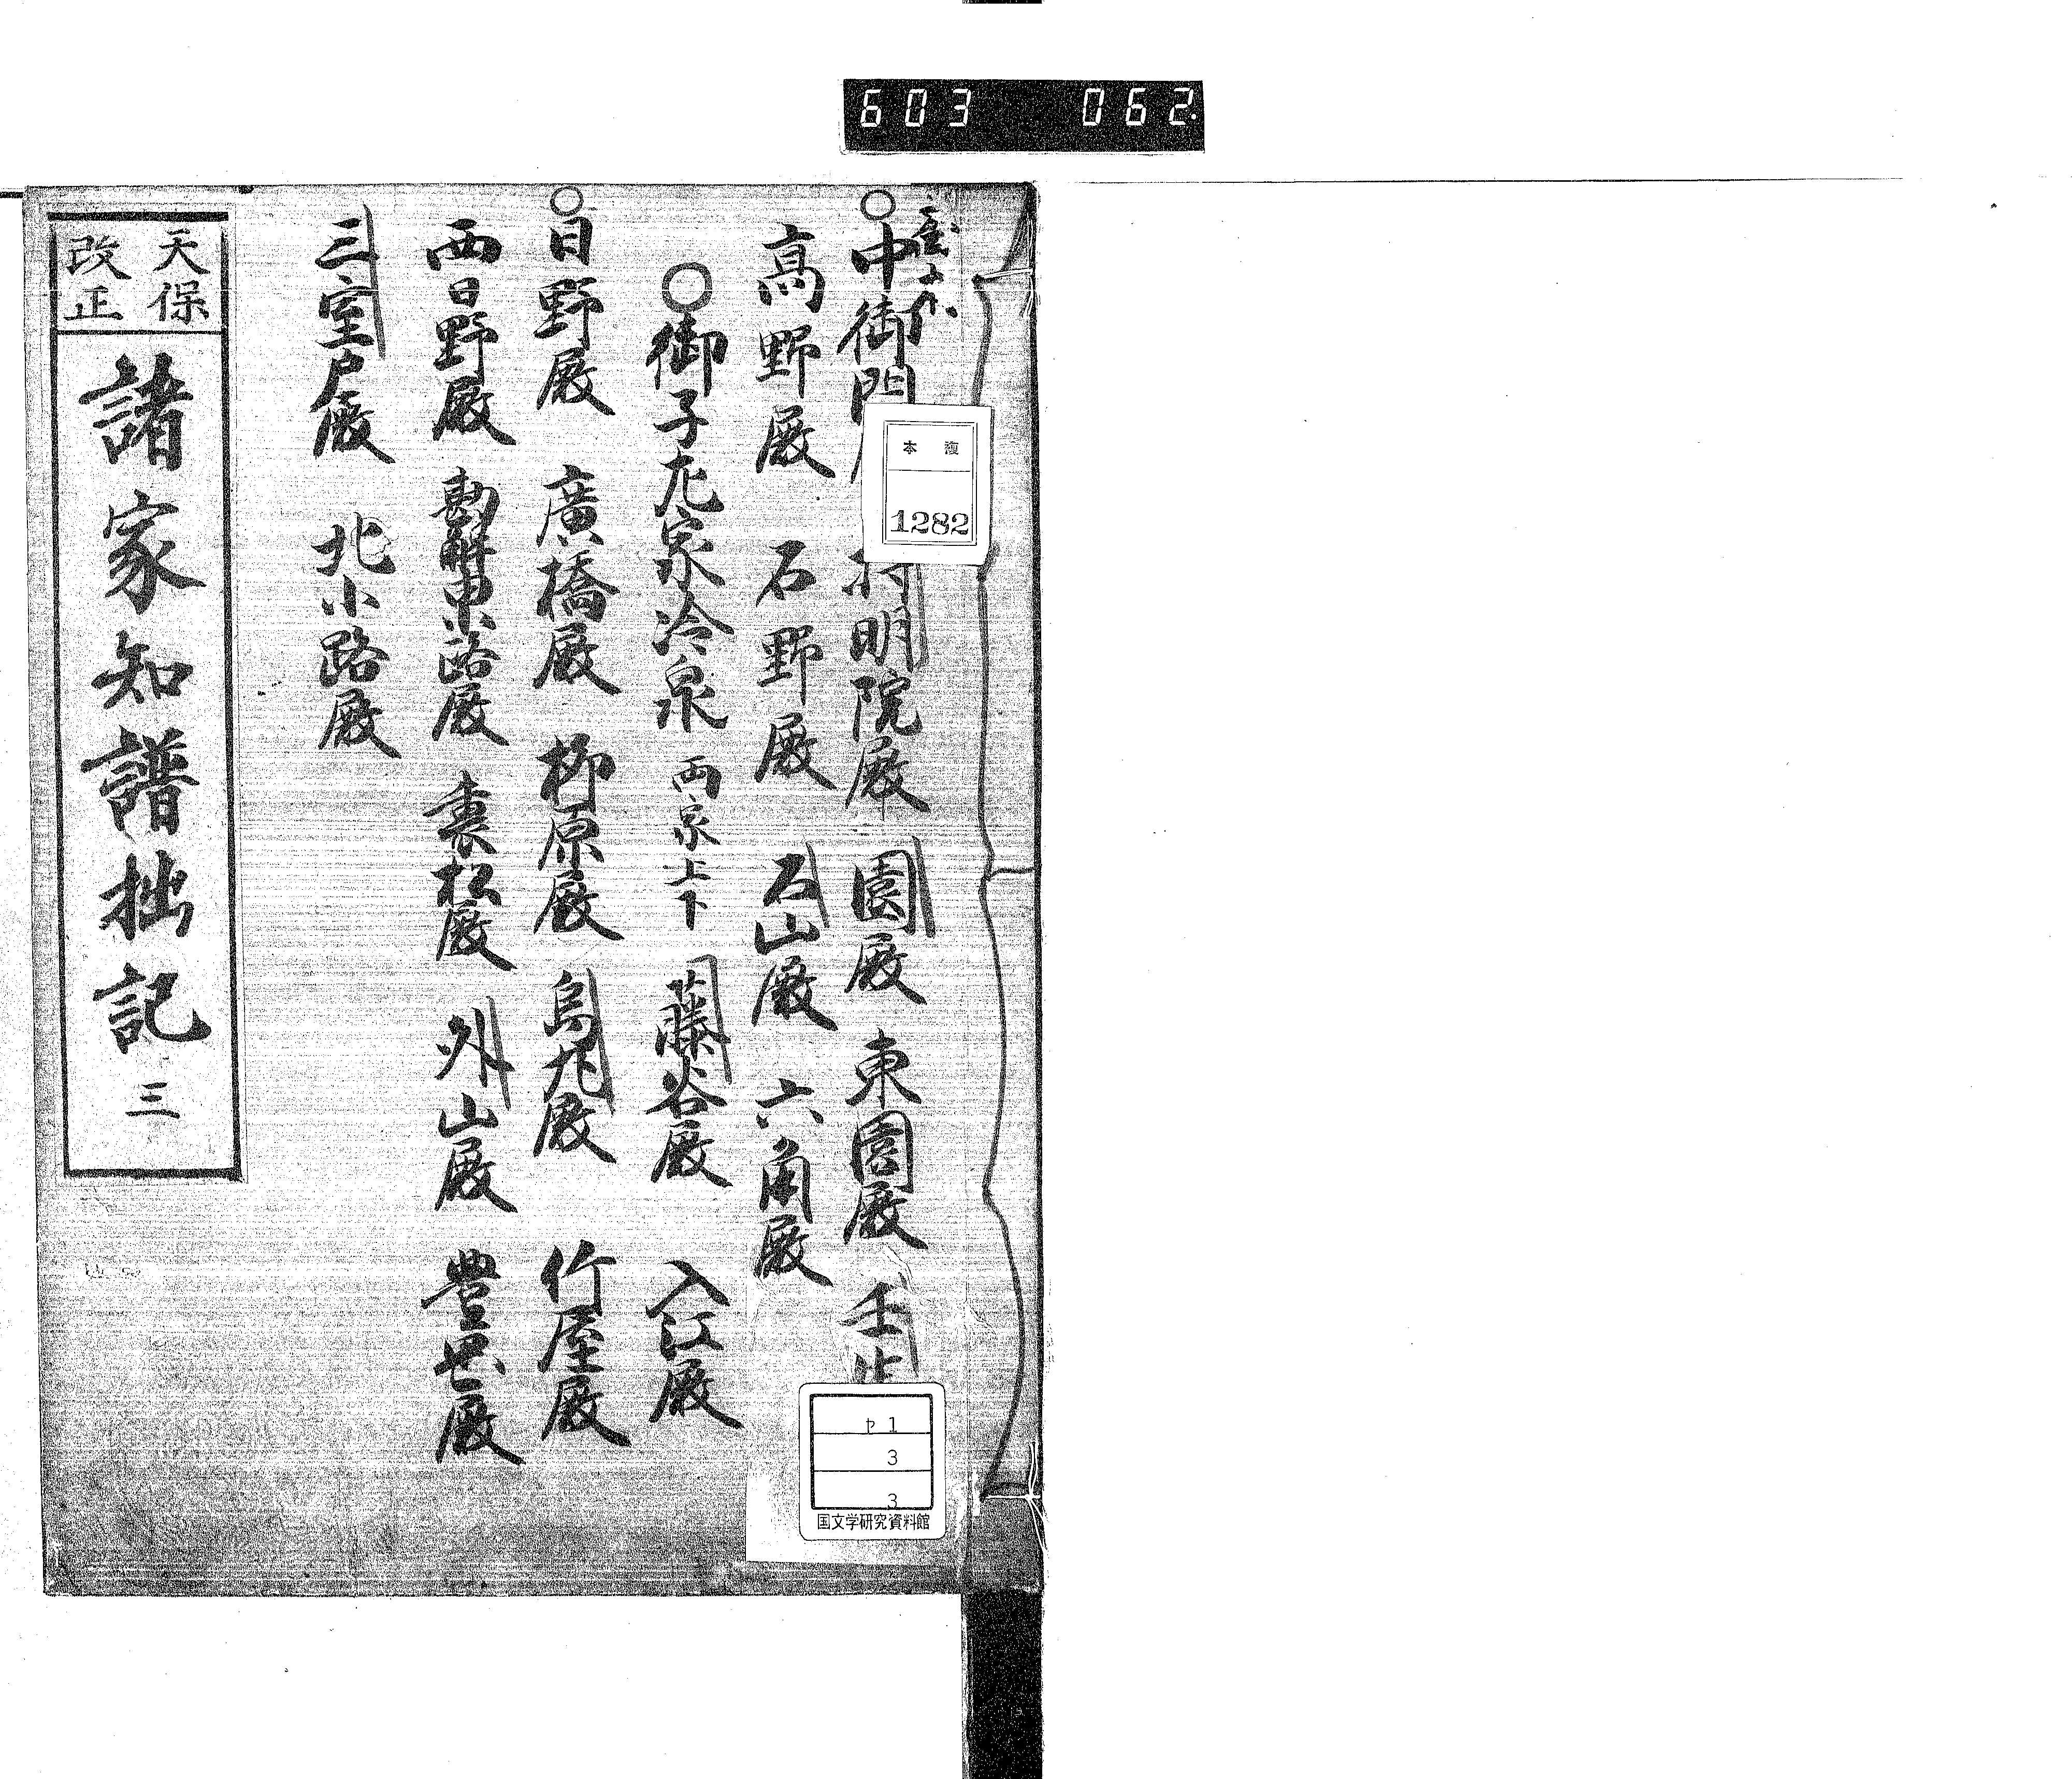 603 062
○中御門 持明院殿 園殿 東園殿 壬生
高野殿 石野殿 石山殿 六角殿
○御子左家冷泉 両家上下 藤谷殿 入江殿
○日野殿 廣橋殿 柳原殿 烏丸殿 竹屋殿
西日野殿 勘解由小路殿 裏松殿 外山殿 豊岡殿
三室戸殿 北小路殿
天保
改正
諸家知譜拙記 三
本複
1282
ヤ1
3
3
国文学研究資料館